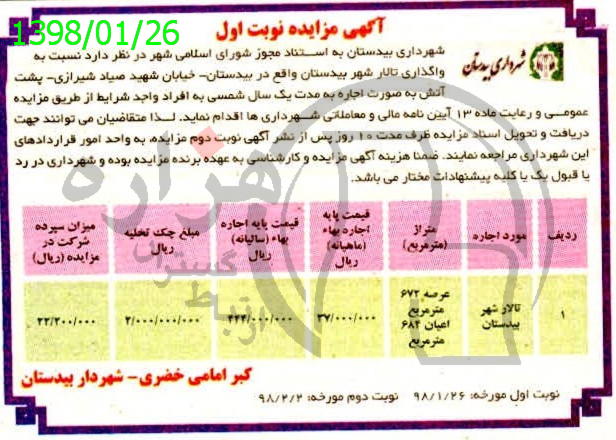 1398/01/26
آگهی مزایده نوبت اول
شهرداری بیدستان
شهرداری بیدستان به استناد مجوز شورای اسلامی شهر در نظر دارد نسبت به
واگذاری تالار شهر بیدستان واقع در بیدستان- خیابان شهید صیاد شیرازی- پشت
آتش به صورت اجاره به مدت یک سال شمسی به افراد واجد شرایط از طریق مزایده
عمومی و رعایت ماده ۱۳ آیین نامه مالی و معاملاتی شهرداری ها اقدام نماید. لذا متقاضیان می توانند جهت
دریافت و تحویل اسناد مزایده ظرف مدت ۱۰ روز پس از نشر آگهی نوبت دوم مزایده، به واحد امور قراردادهای
این شهرداری مراجعه نمایند. ضمنا هزینه آگهی مزایده و کارشناسی به عهده برنده مزایده بوده و شهرداری در رد
یا قبول یک یا کلیه پیشنهادات مختار می باشد.
ردیف
مورد اجاره
متراژ
(مترمربع)
قیمت پایه
اجاره بهاء
(ماهیانه)
ریال
قیمت پایه اجاره
بهاء (سالیانه)
ریال
مبلغ چک تخلیه
ریال
میزان سپرده
شرکت در
مزایده (ریال)
۱
تالار شهر
بیدستان
عرصه ۶۷۲
مترمربع
اعیان ۶۸۴
مترمربع
۳۷/۰۰۰/۰۰۰
۴۴۴/۰۰۰/۰۰۰
۲/۰۰۰/۰۰۰/۰۰۰
۲۲/۲۰۰/۰۰۰
نوبت اول مورخه: ۹۸/۱/۲۶ نوبت دوم مورخه: ۹۸/۲/۲
کبر امامی خضری- شهردار بیدستان
هزاره
گسترش
ارتباط